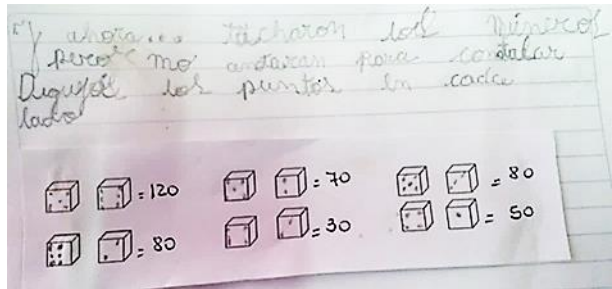 Y ahora... tacharon los números
pero no andaran para contalar
Digujos los puntos en cada
lado
= 120 = 70 = 80
= 80 = 30 = 50